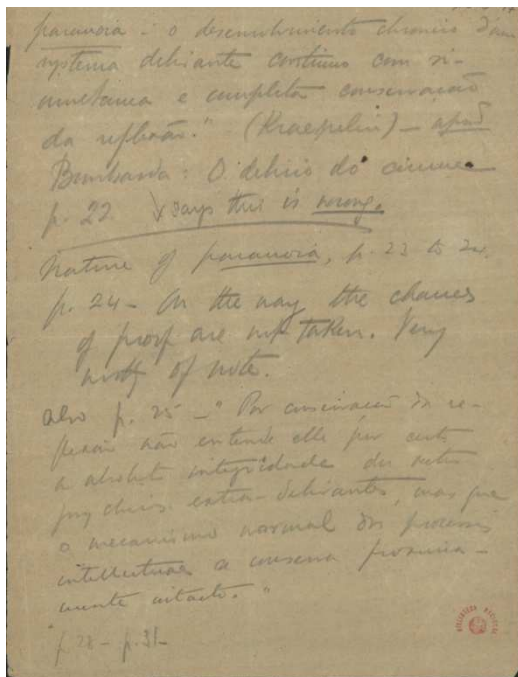 paranoia - o desenvolvimento chronico d'um
systema delirante continuo com si-
multanea e completa conservação
da reflexão." (Kraepelin) - apud
Bombarda: O delirio do ciume
p. 22 says this is wrong.
Nature of paranoia, p. 23 to 24.
p. 24 - On the way the chances
of proof are not taken. Very
worthy of note.
also p. 25 - "Por conservação da re-
flexão não entende elle por certo
a absoluta integridade dos actos
psychicos extra-delirantes, mas que
o mecanismo normal dos processos
intellectuaes se conserva
mente intacto."
p. 28 - p. 31 -
BIBLIOTECA NACIONAL